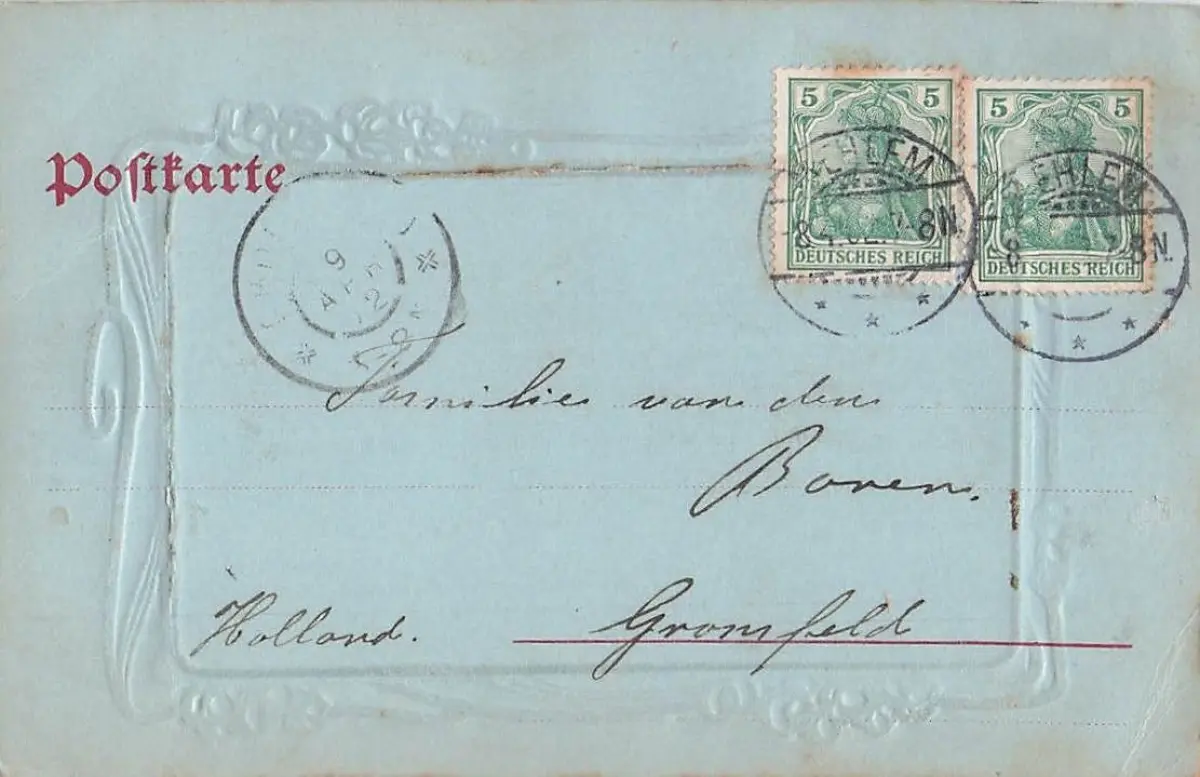 Postkarte
5 5
5 5
DEUTSCHES REICH
DEUTSCHES REICH
EHLEM
8 N.
EHLEM
8 8N.
9
Familie van den
Boren.
Holland.
Gronsfeld